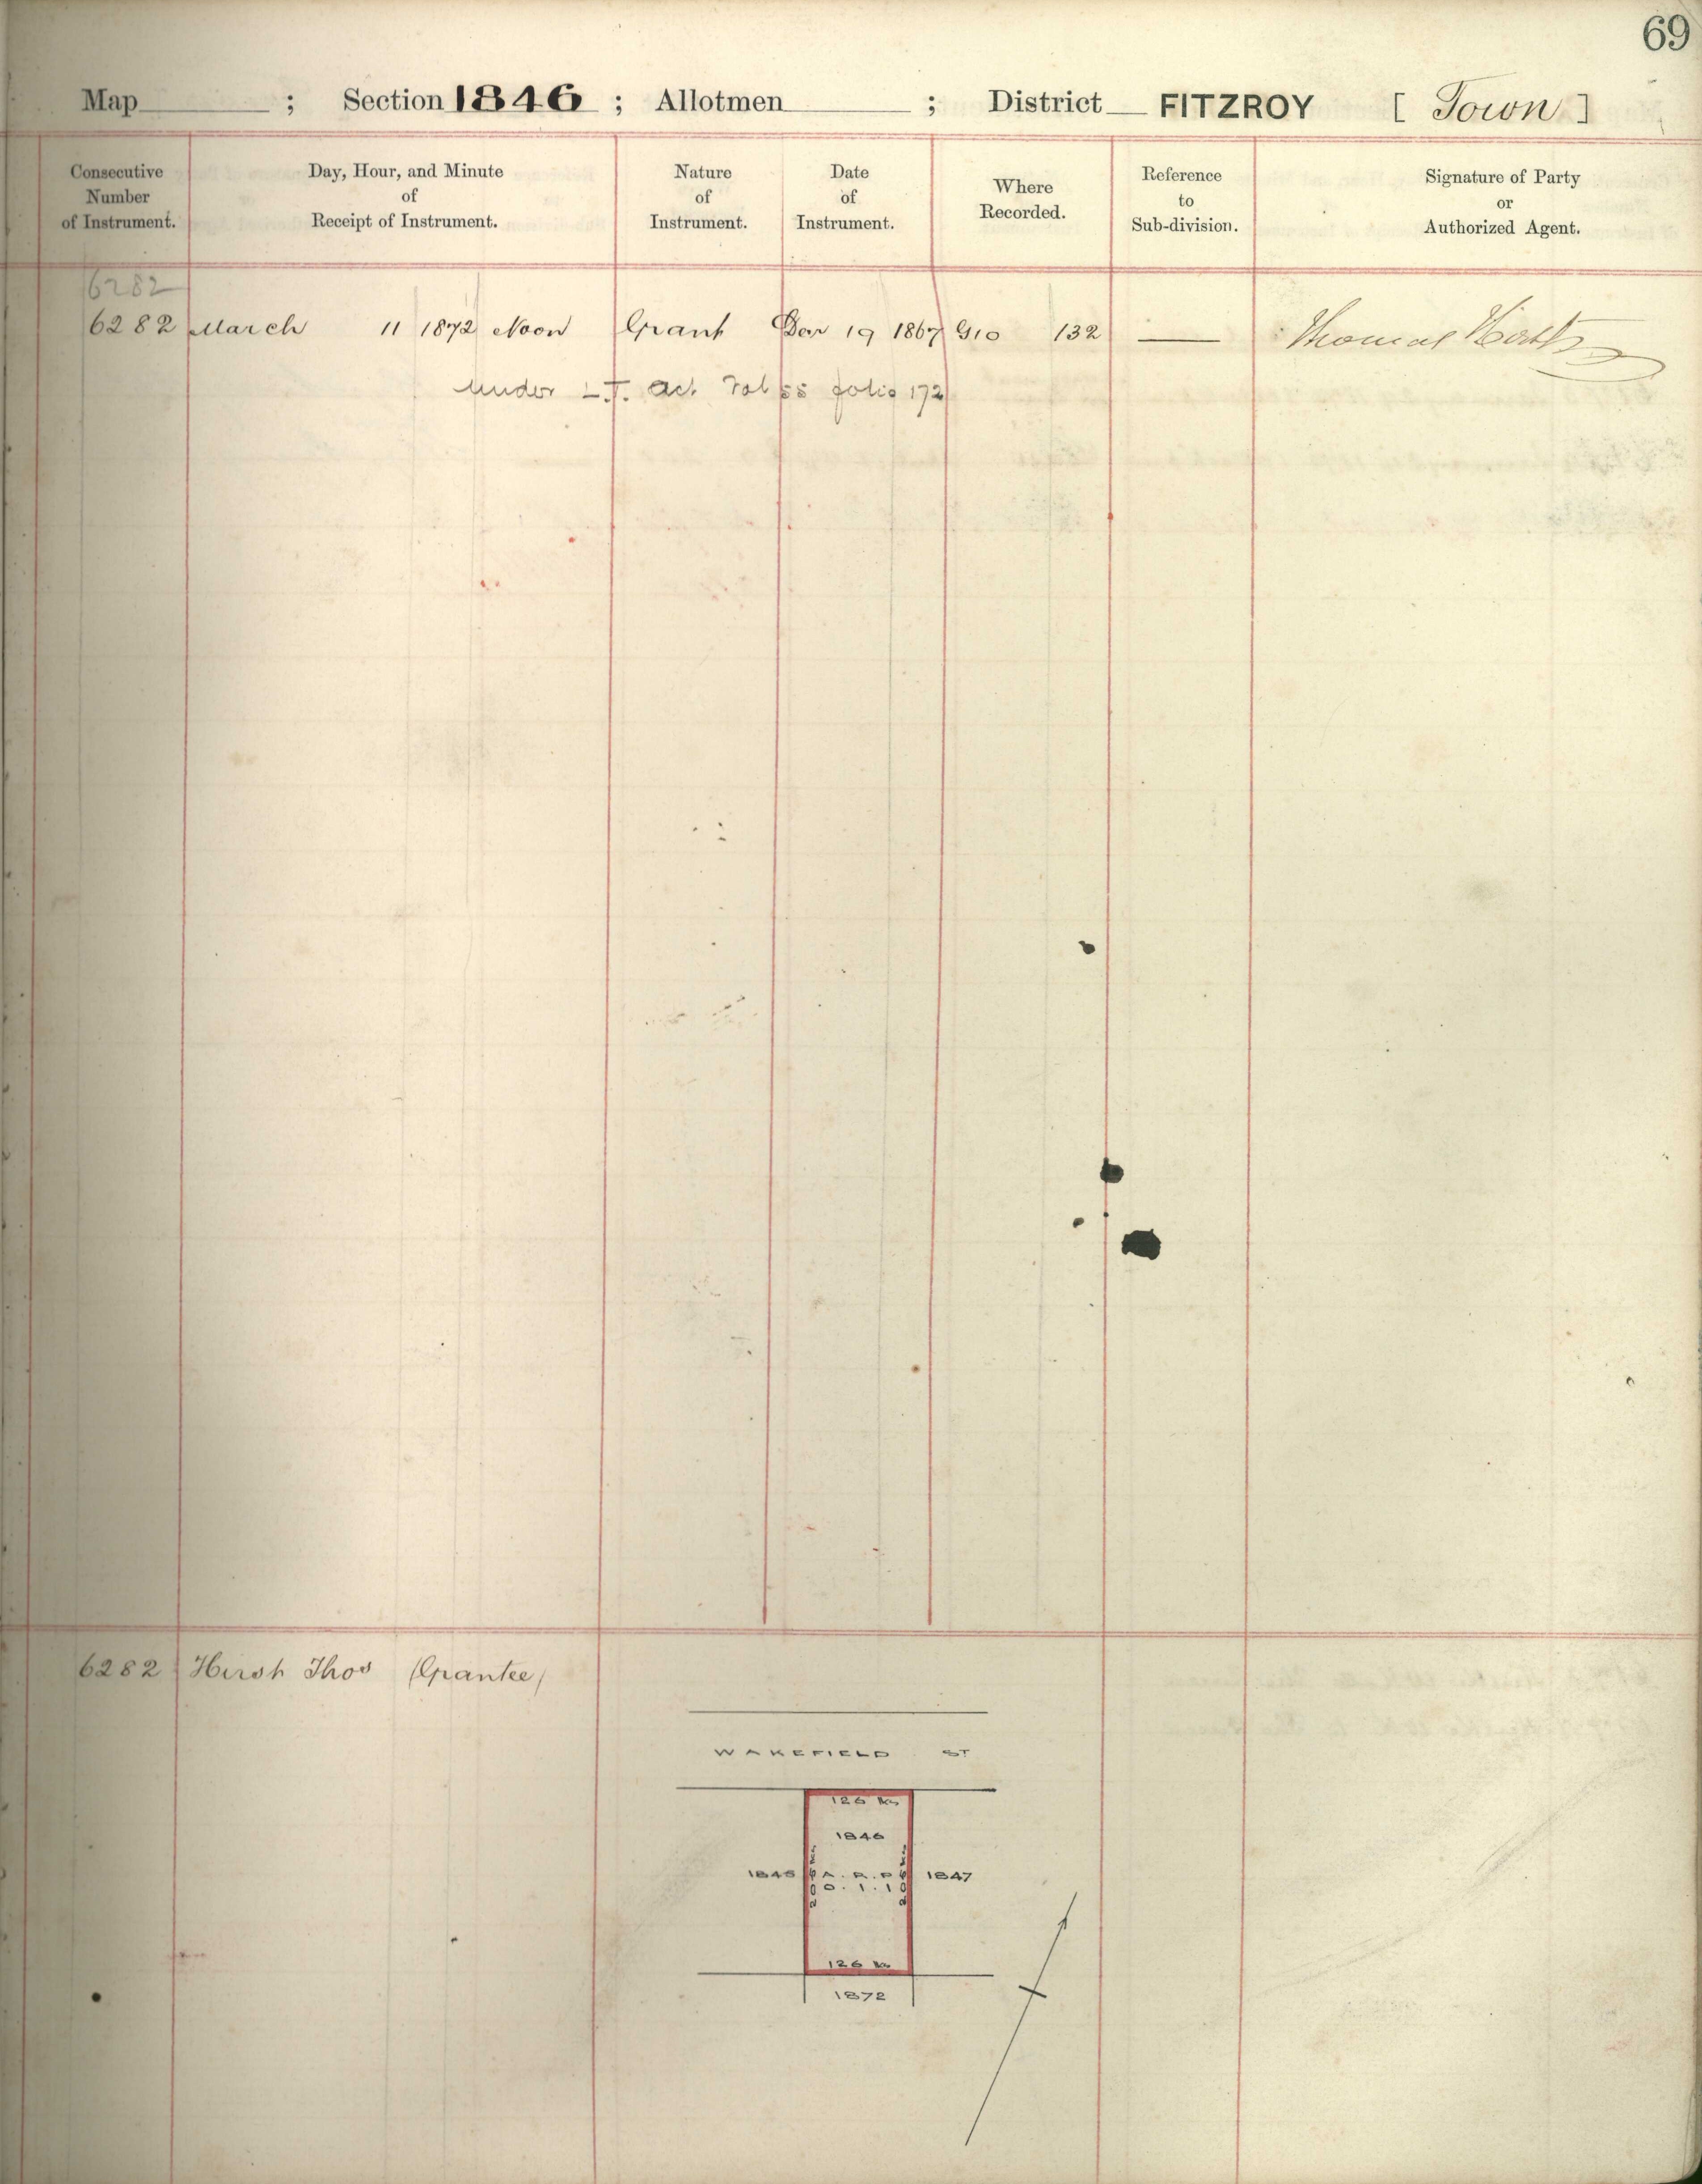 69
Map ; Section 1846 ; Allotmen ; District FITZROY [ Town ]
Consecutive Number of Instrument.
Day, Hour, and Minute of Receipt of Instrument.
Nature of Instrument.
Date of Instrument.
Where Recorded.
Reference to Sub-division.
Signature of Party or Authorized Agent.
6282
6282 March 11 1872 Noon Grant 19 1867 G10 132 — Thomas
Under L.T. Act Vol 55 folio 172
6282 Thos (Grantee)
WAKEFIELD ST
126 lks
1846
1845 A. R. P. 1847
0. 1. 10
126 lks
1872